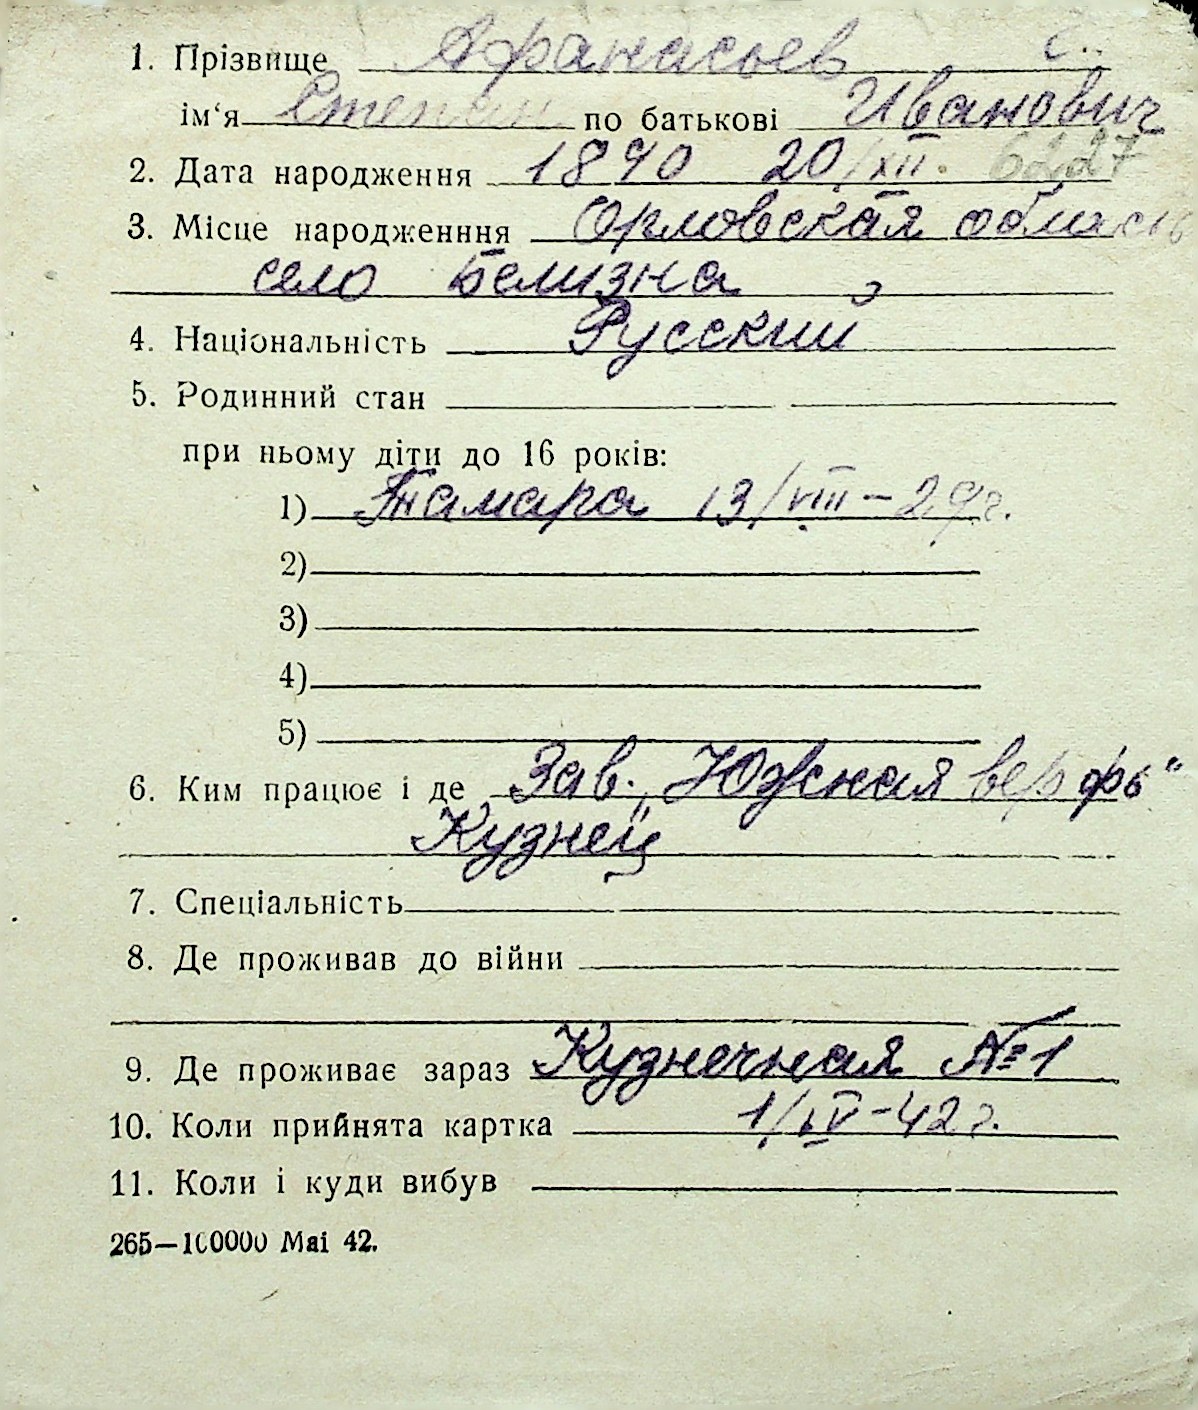 1. Прізвище Афанасьев С..
ім‘я Степан по батькові Иванович
2. Дата народження 1890 20/XII. 6227
3. Місце народженння Орловская область
село Белизна
4. Національність Русский
5. Родинний стан
при ньому діти до 16 років:
1) Тамара 13/VIII – 29г.
2)
3)
4)
5)
6. Ким працює і де Зав. „Южная верфь“
Кузнец
7. Спеціальність
8. Де проживав до війни
9. Де проживає зараз Кузнечная №1
10. Коли прийнята картка 1/IV-42г.
11. Коли і куди вибув
265—100000 Mai 42.